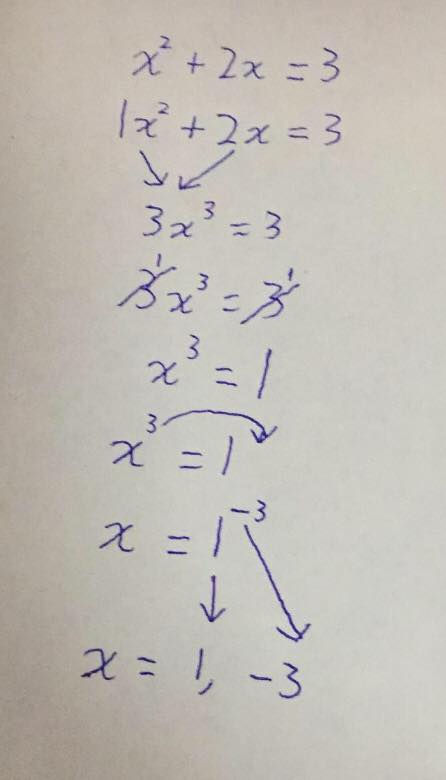 x² + 2x = 3
1x² + 2x = 3
3x³ = 3
3¹x³ = 3¹
x³ = 1
x³ = 1
x = 1⁻³
x = 1, -3